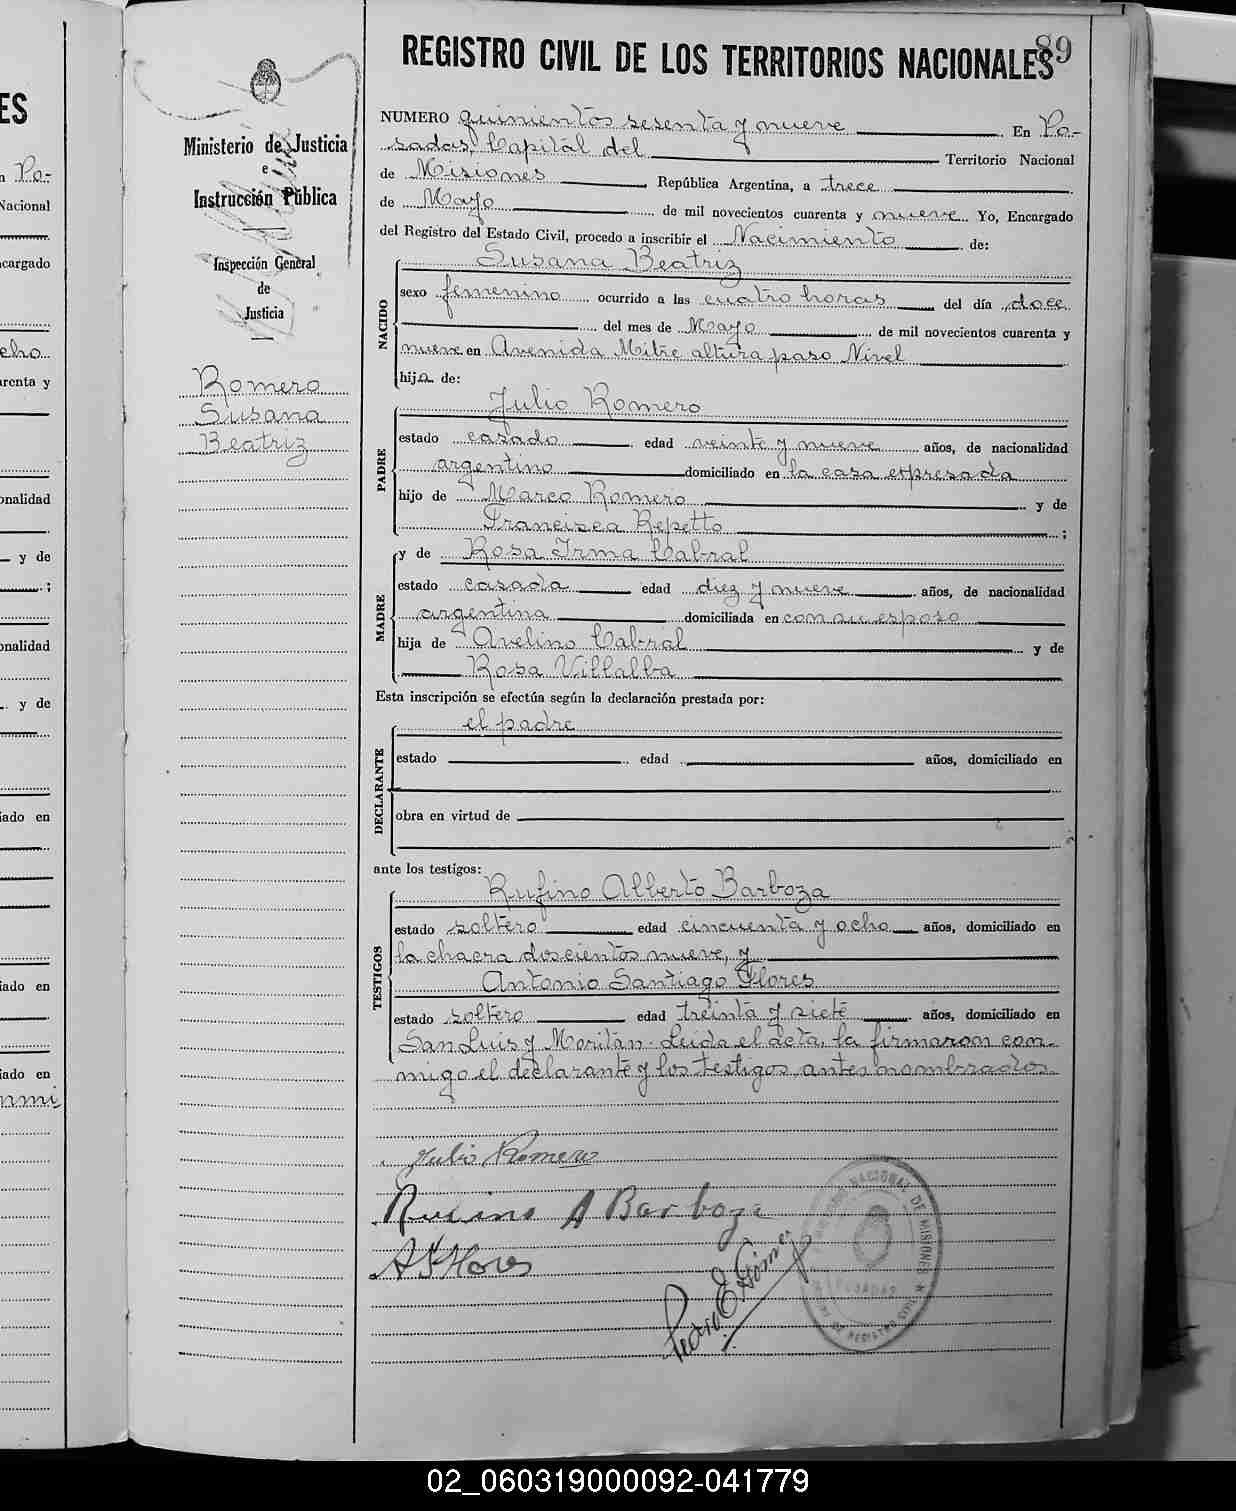 89
REGISTRO CIVIL DE LOS TERRITORIOS NACIONALES
Ministerio de Justicia
e
Instrucción Pública
Inspección General
de
Justicia
Romero
Susana
Beatriz
NUMERO quinientos sesenta y nueve En Po-
sadas, Capital del Territorio Nacional
de Misiones República Argentina, a trece
de Mayo de mil novecientos cuarenta y nueve Yo, Encargado
del Registro del Estado Civil, procedo a inscribir el Nacimiento de:
NACIDO
Susana Beatriz
sexo femenino ocurrido a las cuatro horas del día doce
del mes de Mayo de mil novecientos cuarenta y
nueve en Avenida Mitre altura paso Nivel
hija de:
PADRE
Julio Romero
estado casado edad veinte y nueve años, de nacionalidad
argentino domiciliado en la casa expresada
hijo de Marco Romero y de
Francisca Repetto ;
MADRE
y de Rosa Irma Cabral
estado casada edad diez y nueve años, de nacionalidad
argentina domiciliada en con su esposo
hija de Avelino Cabral y de
Rosa Villalba
Esta inscripción se efectúa según la declaración prestada por:
DECLARANTE
el padre
estado edad años, domiciliado en
obra en virtud de
ante los testigos:
TESTIGOS
Rufino Alberto Barboza
estado soltero edad cincuenta y ocho años, domiciliado en
la chacra doscientos nueve, y
Antonio Santiago Flores
estado soltero edad treinta y siete años, domiciliado en
San Luis y Moritán. Leida el acta, la firmaron con-
migo el declarante y los testigos antes nombrados
Julio Romero
Rufino A Barboza
A S Flores
Pedro E Gómez
ES
Po-
Nacional
cargado
cho
renta y
onalidad
y de
;
onalidad
y de
iado en
iado en
iado en
nmi
02_060319000092-041779